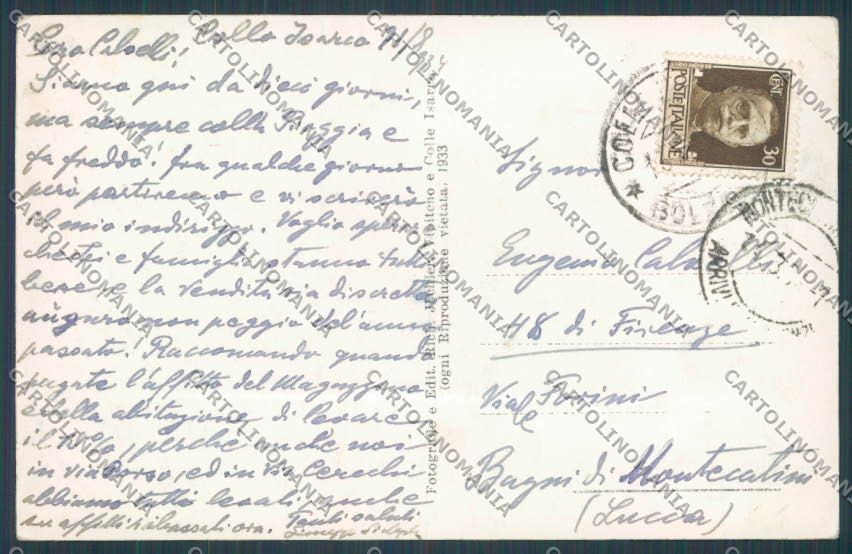 Caro Calvelli, Colle Isarco 9/8
Siamo qui da dieci giorni,
ma sempre colla Pioggia e
fa freddo! fra qualche giorno
però partiremo e vi scriverò
il mio indirizzo. Voglio sperare
che lei e famiglia stanno tutti
bene e la vendita sia discreta
auguro non peggio dell'anno
passato. Raccomando quando
pagate l'affitto del Magazzeno
e della abitazione di levare
il %, perché anche noi
in via Corso, ed in via Cerechi
abbiamo tutti levati anche
su affitti ribassati ora. Tanti saluti
Giuseppe
Fotografie e Edit. Rich. Vipiteno e Colle Isarco
(ogni Riproduzione vietata) 1933
POSTE ITALIANE
CENT.
30
COLLE
BOLZ
MONTECA
ARRIVI
Signor
Eugenio Calvelli
48 di Firenze
Viale Forini
Bagni di Montecatini
(Lucca)
CARTOLINOMANIA